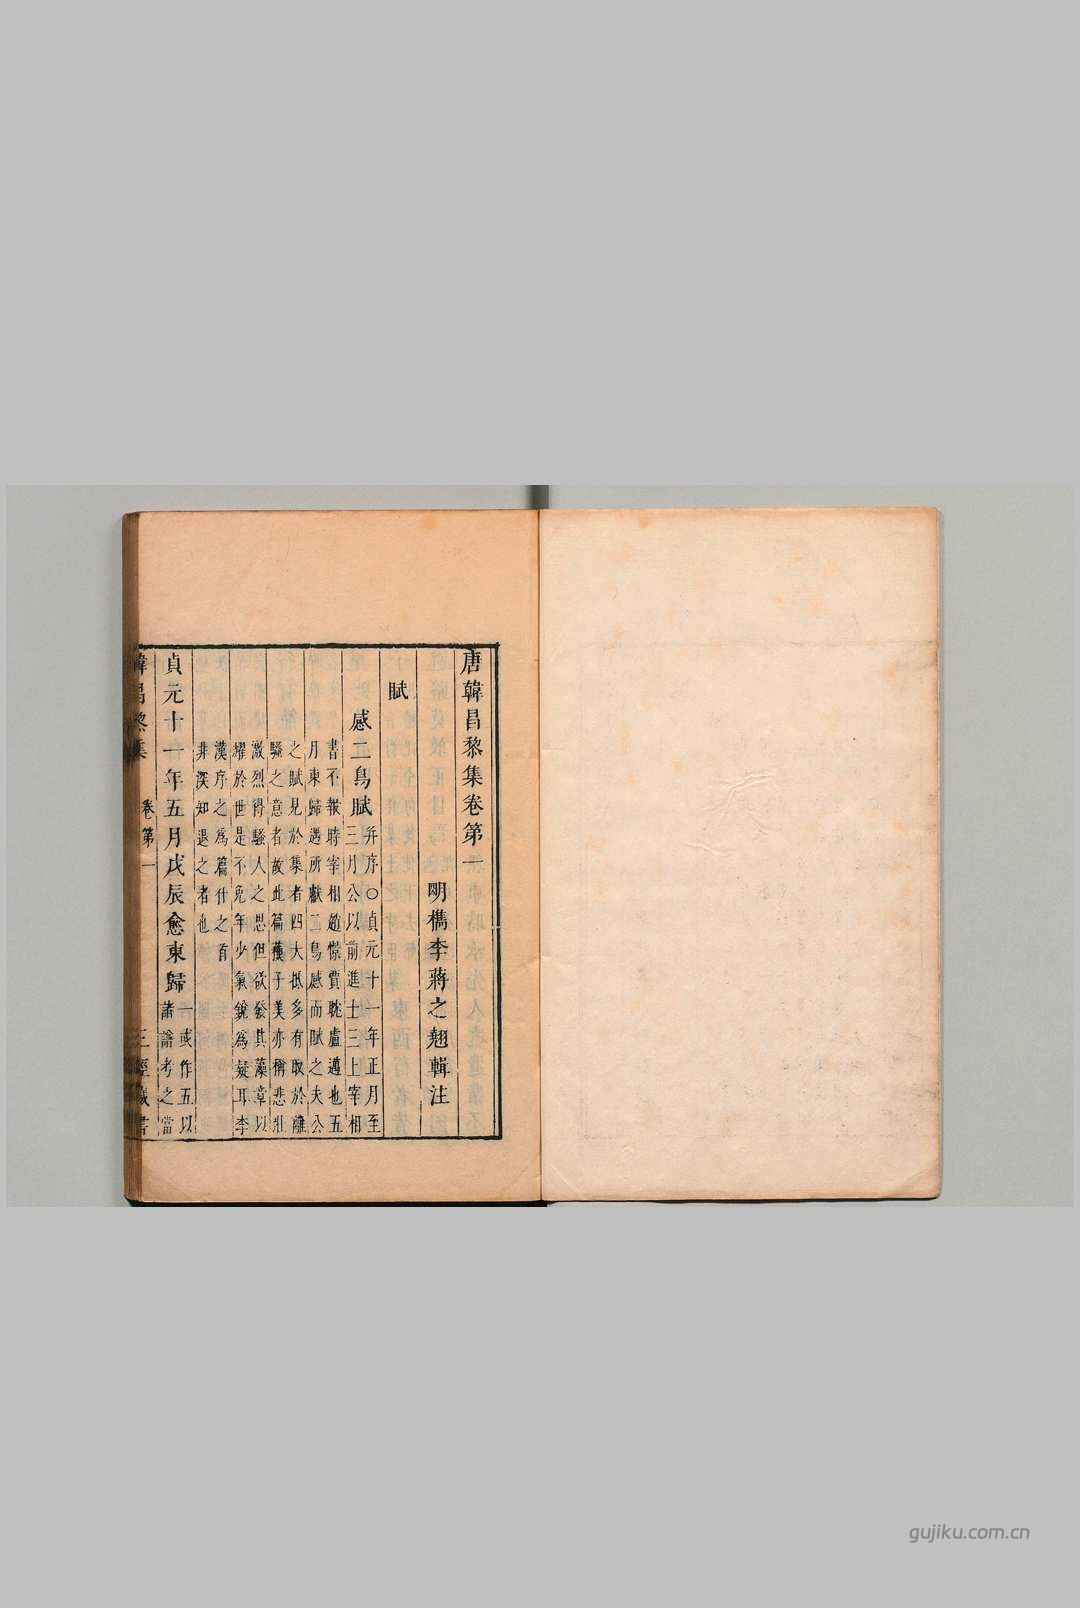 唐韓昌黎集卷第一
明檇李蔣之翹輯注
賦
感二鳥賦
并序○貞元十一年正月至
三月公以前進士三上宰相
書不報時宰相趙憬賈耽盧邁也五
月東歸遇所獻二鳥感而賦之夫公
之賦見於集者四大抵多有取於離
騷之意者故此篇蘓子美亦稱悲壯
激烈得騷人之思但欲發其藻章以
耀於世是不免年少氣銳為疑耳李
漢序之為篇什之首
非深知退之者也
貞元十一年五月戊辰愈東歸
一或作五以
諸譜考之當
韓昌黎集
卷第一
三徑藏書
gujiku.com.cn